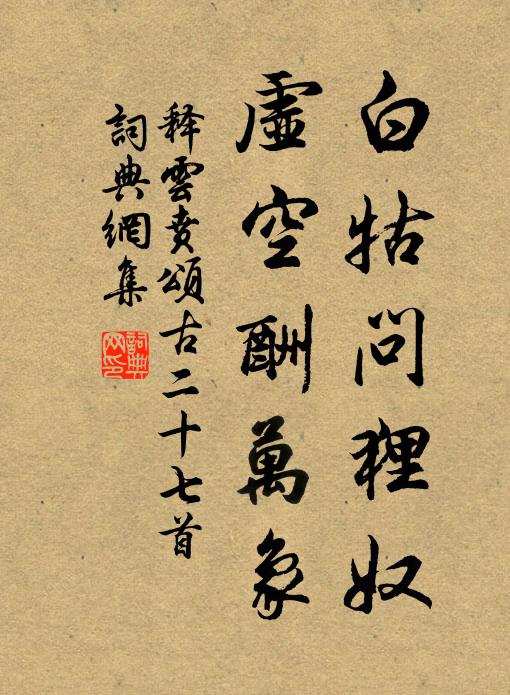 白牯問狸奴
虛空酬萬象
釋雲賁頌古二十七首
詞典網集
詞典網印